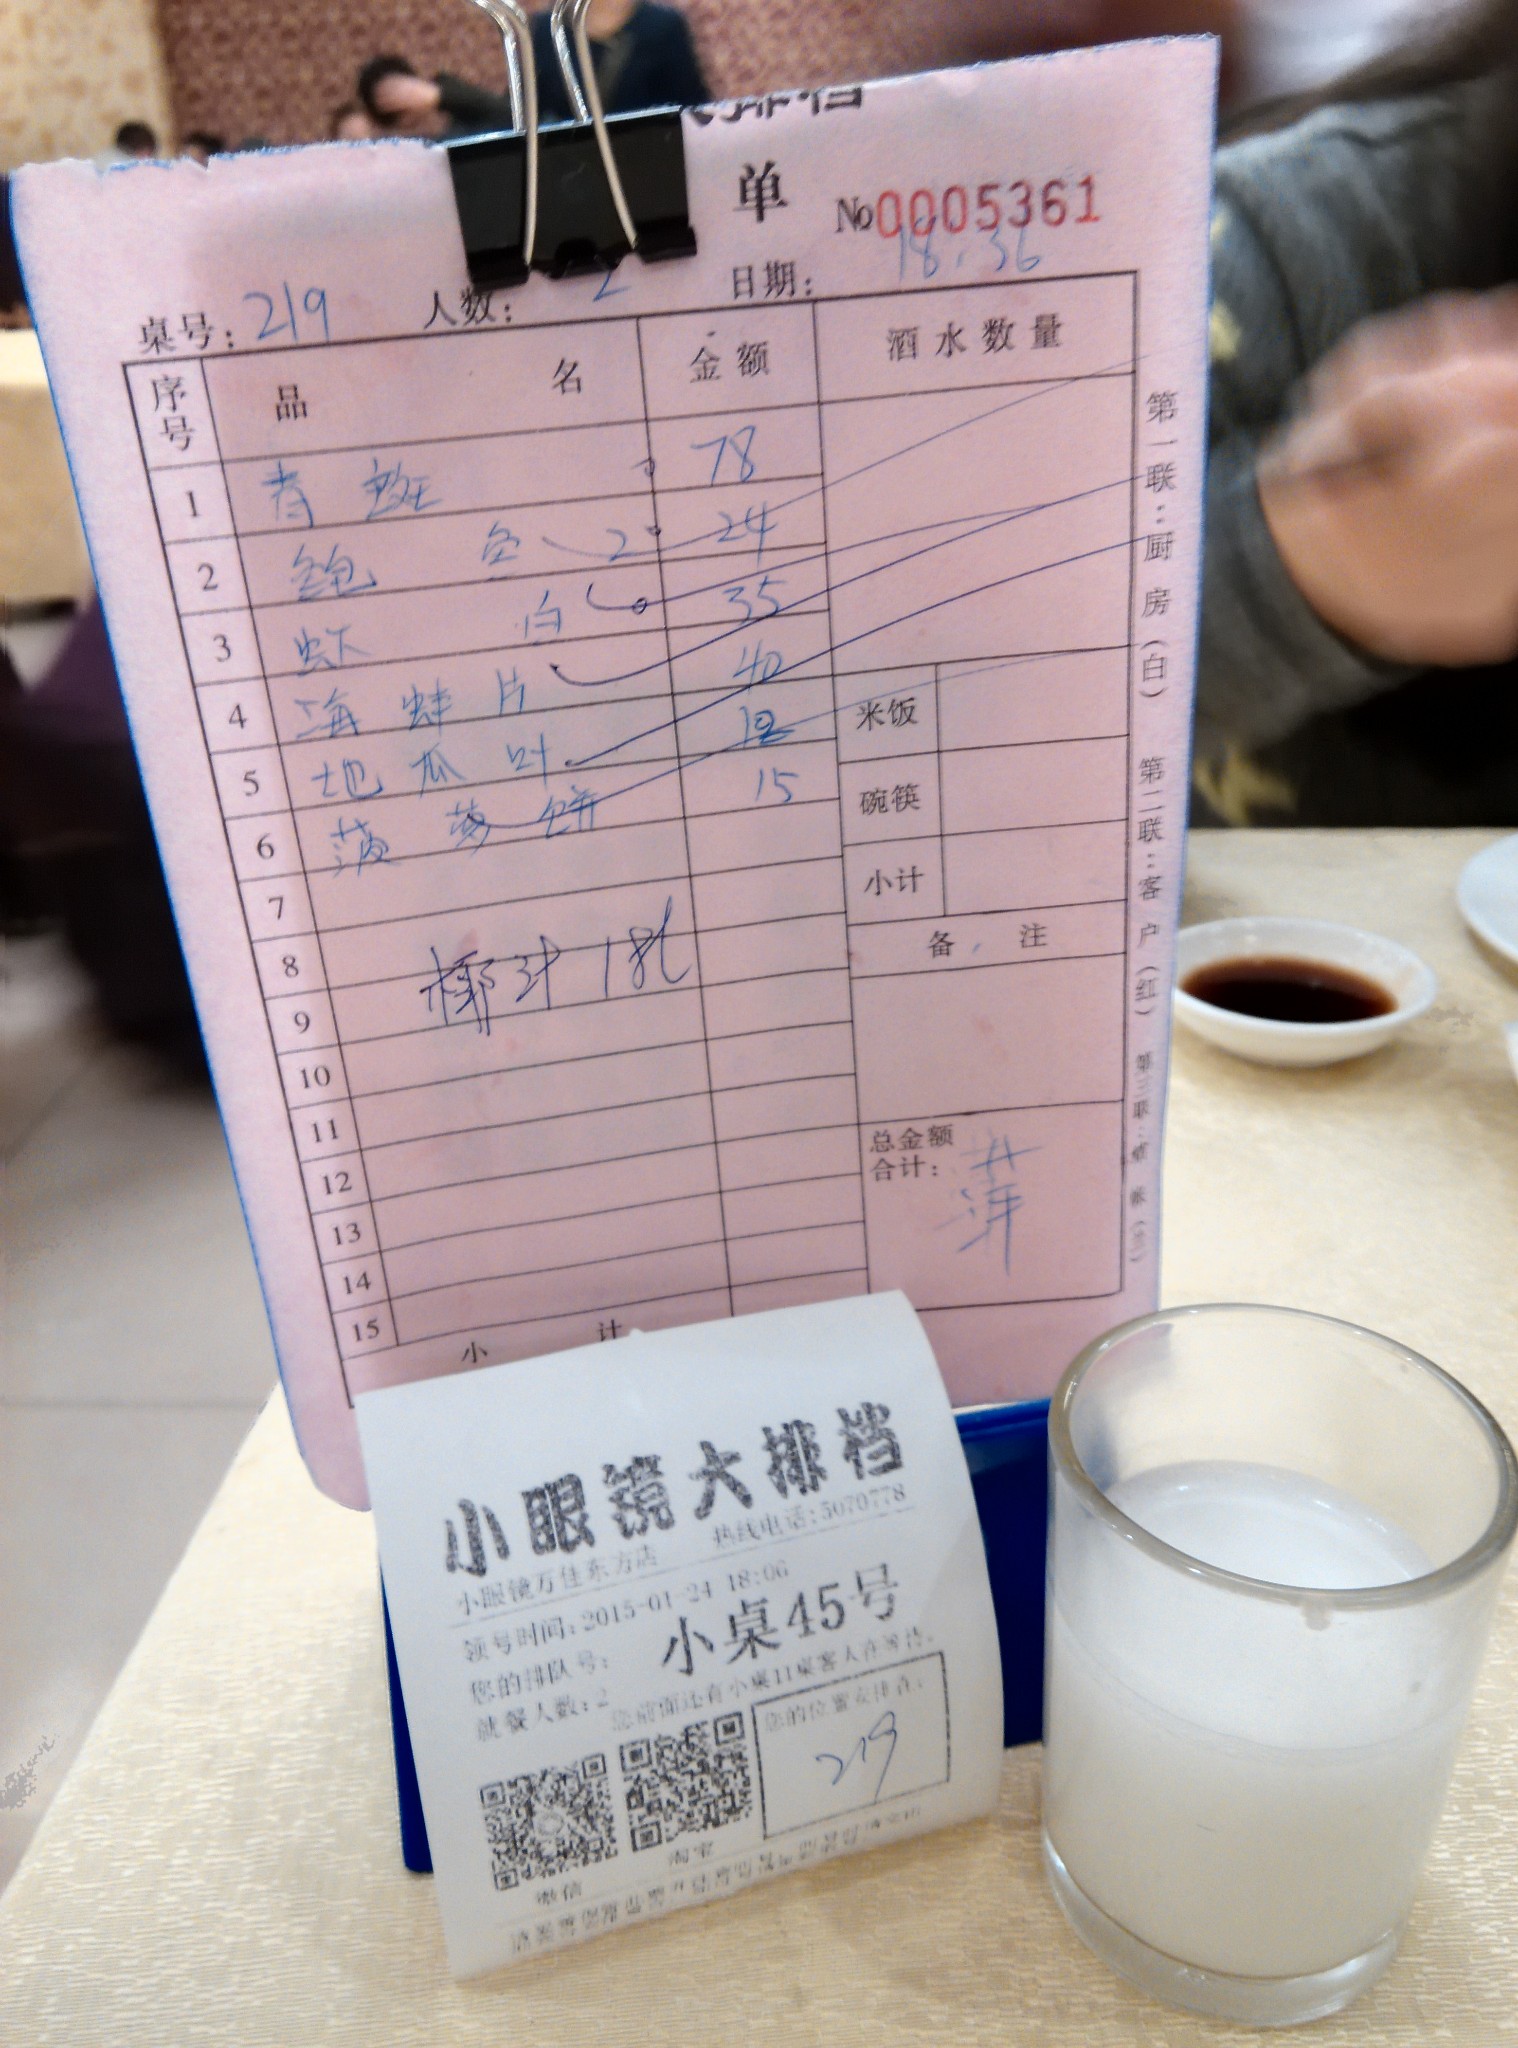 大排档
单
No 0005361
桌号: 219 人数: 2 日期: 18.36
序号 品 名 金额 酒水数量
1 青斑 78
2 鲍鱼 2 24
3 虾 白 35
4 海蚌片 40
5 地瓜叶 12
6 菠萝饼 15
7
8
椰汁 18元
9
10
11
12
13
14
15
小 计
米饭
碗筷
小计
备 注
总金额
合计: 萍
第一联:厨房(白) 第二联:客户(红) 第三联:
小眼镜大排档
小眼镜万佳东方店 热线电话:5070778
领号时间:2015-01-24 18:06
您的排队号: 小桌45号
就餐人数: 2 您前面还有小桌11桌客人在等待.
您的位置安排在:
219
微信 淘宝